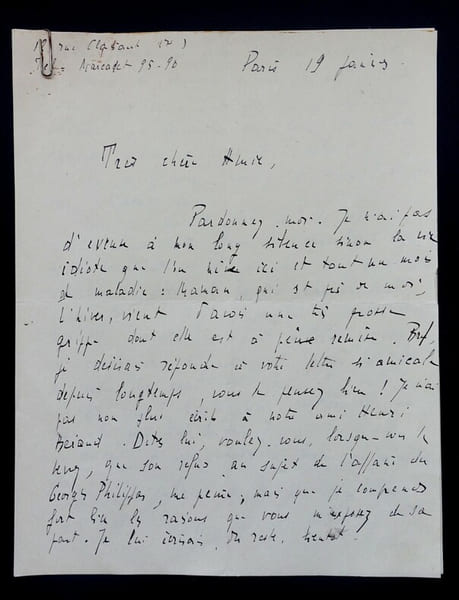 rue
Tel. Marcadet 95-90 Paris 19 janvier.
Très chère Amie,
Pardonnez-moi. Je n'ai pas
d'excuse à mon long silence sinon la vie
idiote que l'on mène ici et tout un mois
de maladie : Maman, qui est près de moi,
l'hiver, vient d'avoir une très grosse
grippe dont elle est à peine remise. Bref,
je désirais répondre à votre lettre si amicale
depuis longtemps, vous le pensez bien ! Je n'ai
pas non plus écrit à notre ami Henri
Béraud. Dites lui, voulez-vous, lorsque vous le
verrez, que son refus au sujet de l'affaire du
Georges Philippar, me peine, mais que je comprends
fort bien les raisons que vous m'exposez de sa
part. Je lui écrirai, du reste, bientôt.